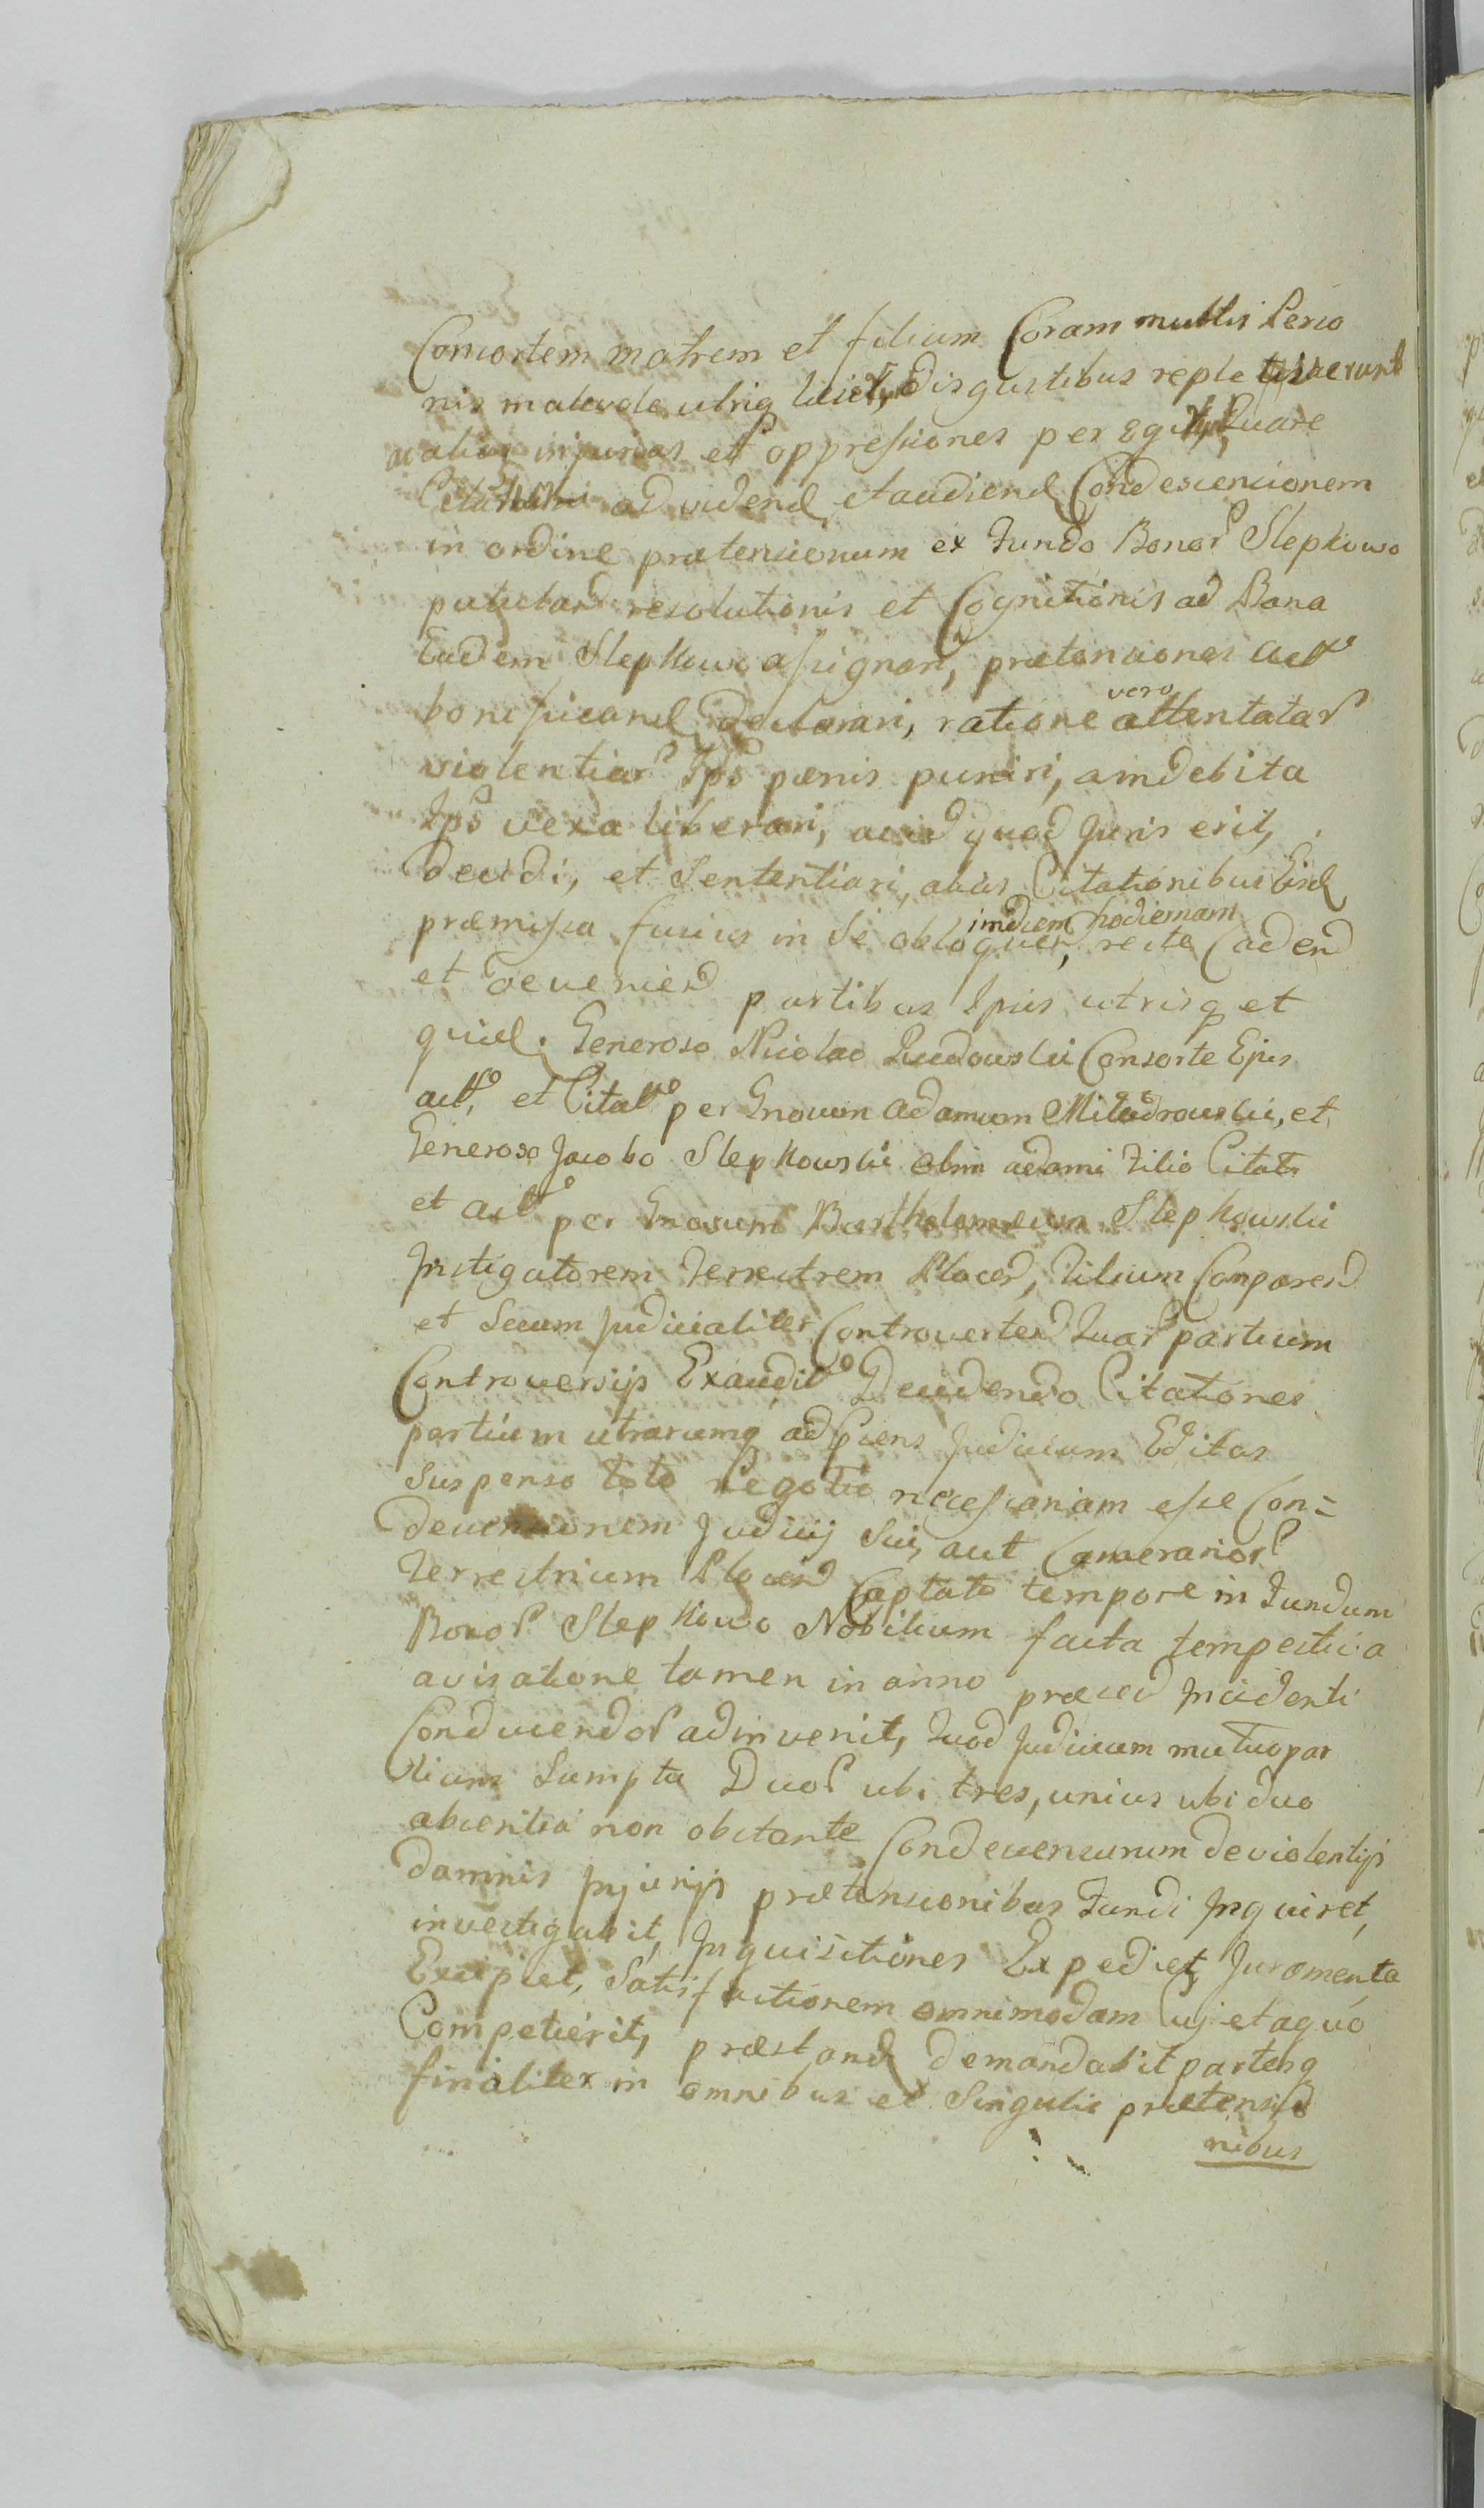 Consortem matrem et filium Coram multis Perso
nis malevole utriq disgustibus reple
ac alias injurias et oppressiones peregit, Quare
ad vidend et audiend Condescensionem
in ordine praetensionum ex Fundo Bonor Slepkowo
pululand resolutionis et Cognitionis ad Bona
Eadem Slepkowo assignari, praetensiones Act
bonificand declarari, ratione vero attentatar
violentiar Ips paenis puniri, ab indebita
Ips vexa liberari, ac id quod Juris erit,
decidi, et Sententiari, aliis Citationibus Eisd
praemissa fusius in Se obloquen, in diem hodiernam recte Cadend
et devenien partibus Ipsis utrisq et
quid. Generoso Nicolao Rudowski Consorte Ejus
act, et Citat per Gnosum Adamum Milodrowski, et
Generoso Jacobo Slepkowski olim Adami Filio Citat
et act per Gnosum Bartholomaeum Slepkowski
Instigatorem Terrestrem Plocen, Filium Comparen
et Secum Judicialiter Controverten Quar partium
Controversijs Exaudit Decidendo Citationes
partium utrarumq ad Praesens Judicium Editas
Suspenso toto Negotio necessariam esse Con=
descensionem Judicij Sui, aut Camerarior
Terrestrium Plocen Captato tempore in Fundum
Bonor Slepkowo Nobilium facta tempestiva
avisatione tamen in anno praesen Incidenti
Conducendor adinvenit, Quod Judicium mutuo par
tium Sumptu Duor ubi tres, unius ubi duo
absentia non obstante Condescensurum de violentijs
damnis Injurijs praetensionibus Fundi Inquiret,
investigabit, Inquisitiones Expediet, Juramenta
Excipiet, Satisfactionem omnimodam Cuj et a quo
Competierit, praestand demandabit partesq
finaliter in omnibus et Singulis praetensio
nibus